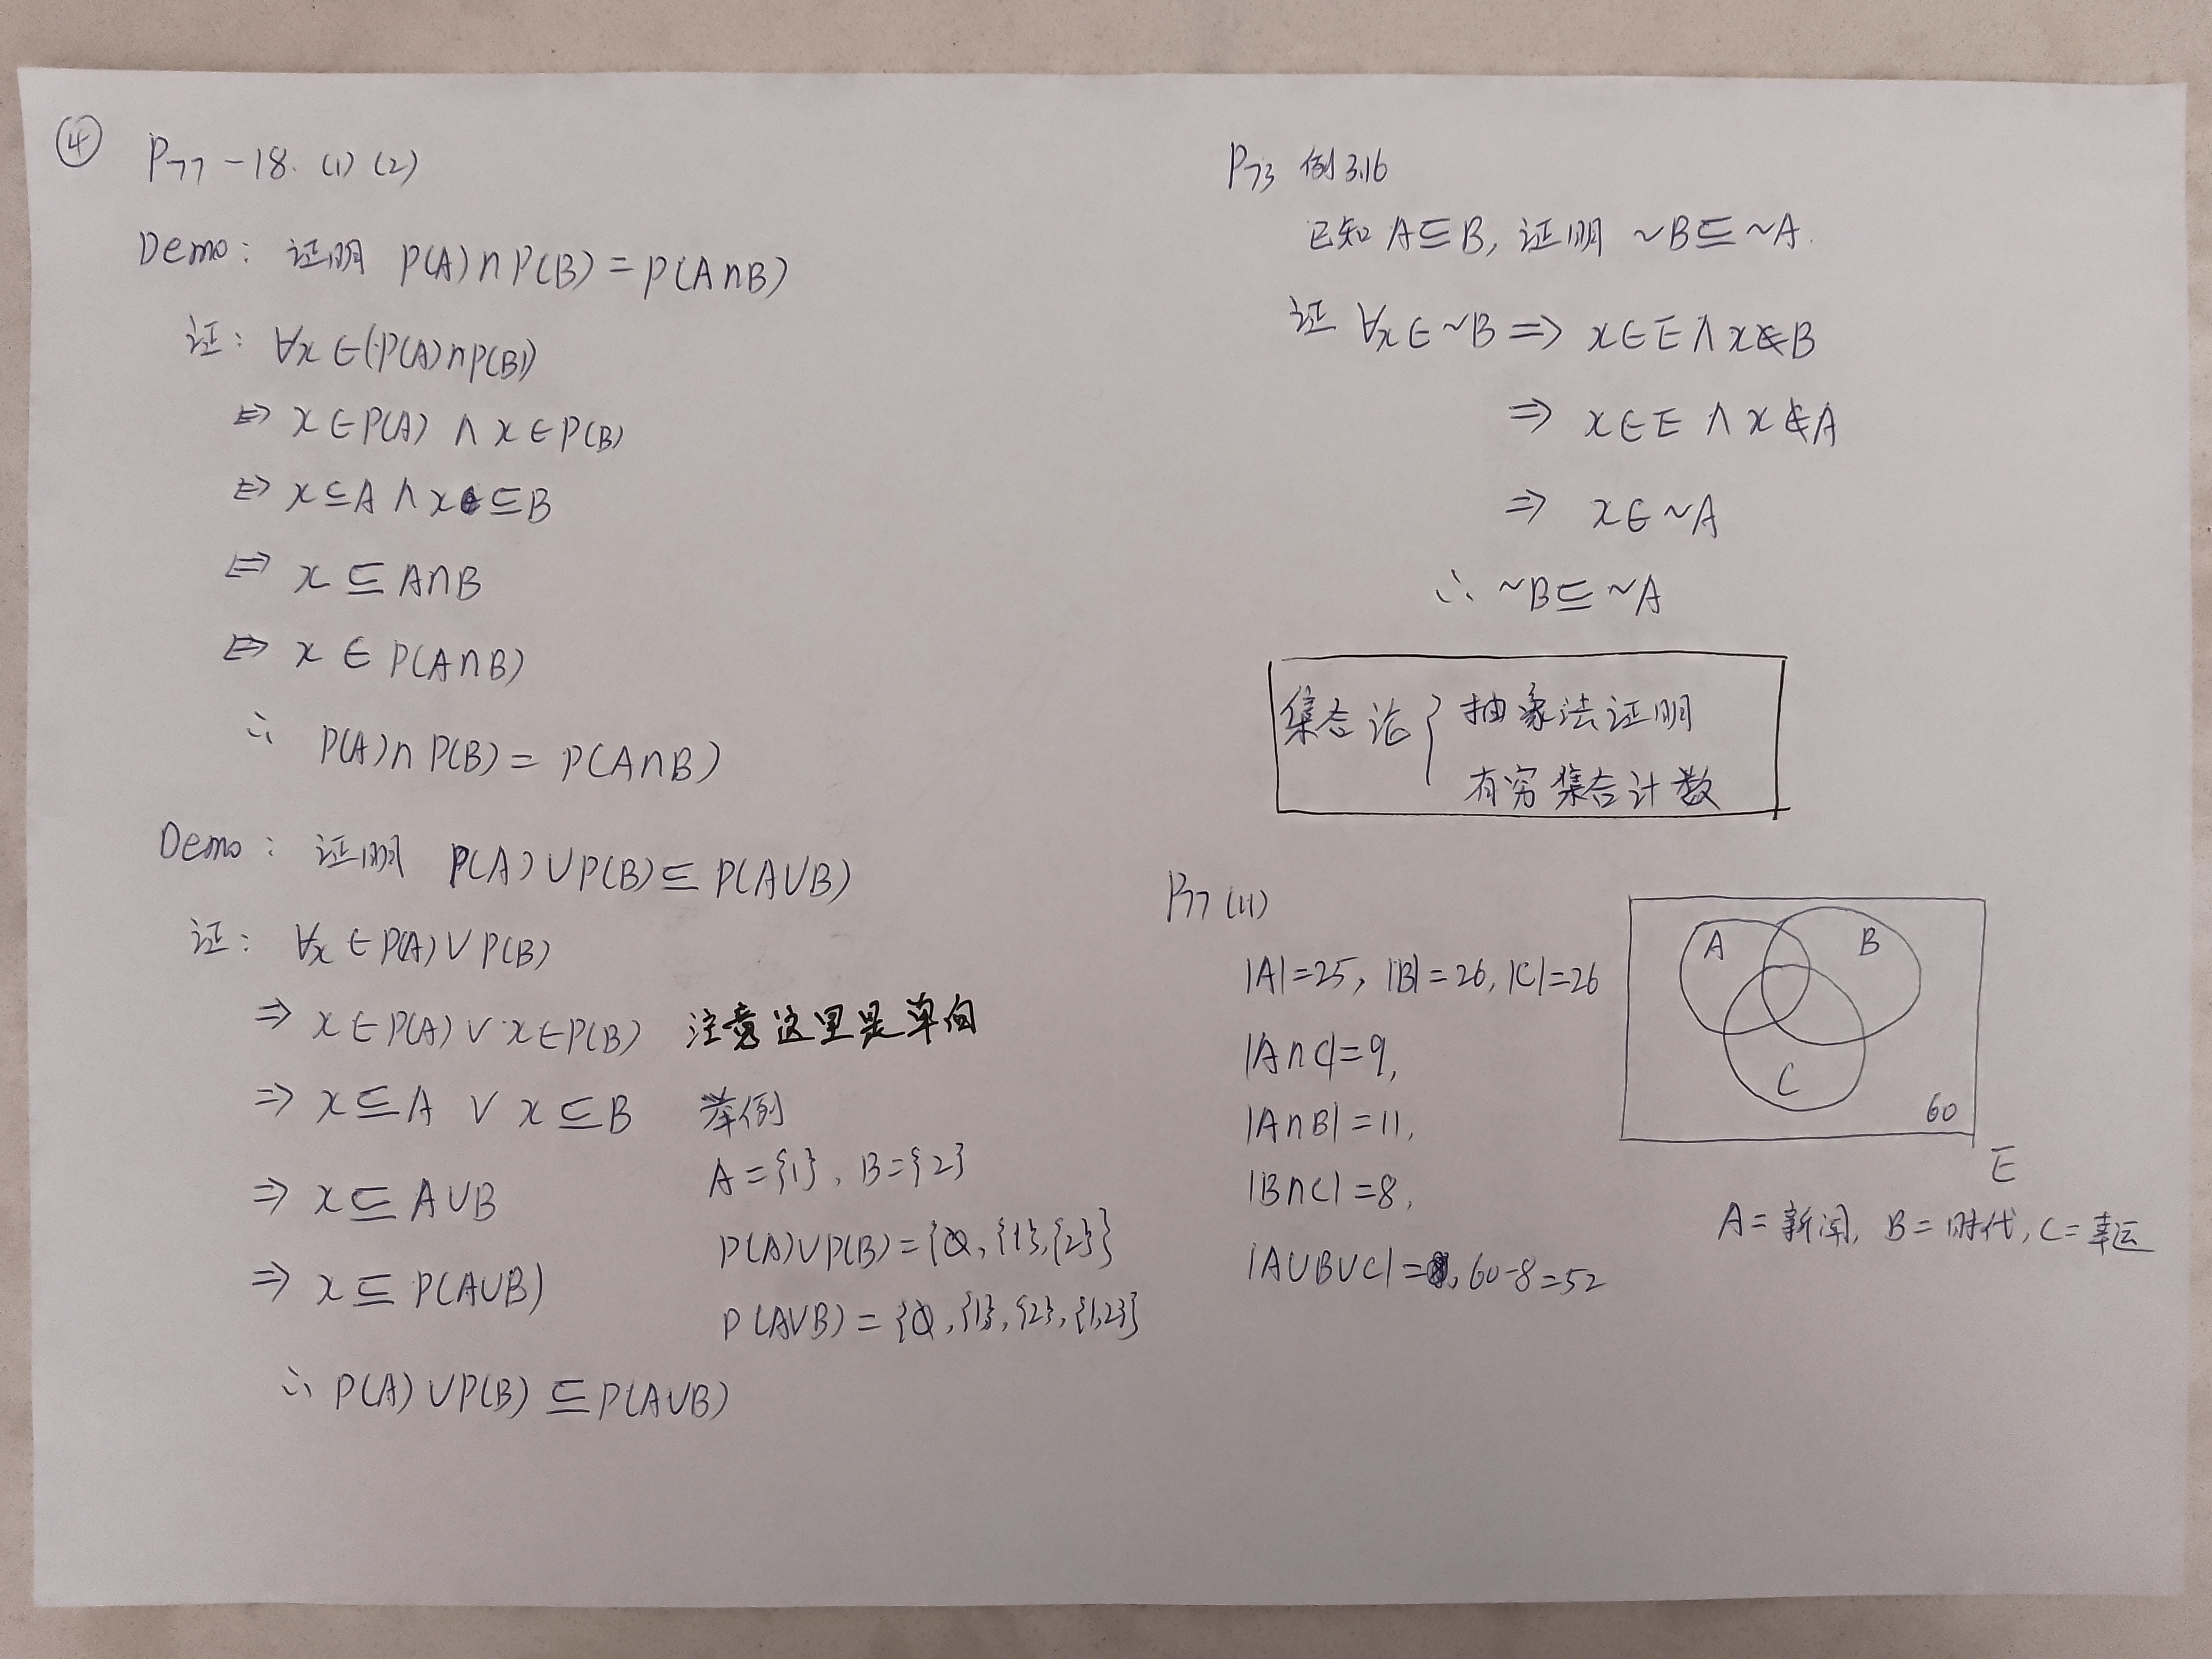 ④ P77-18. (1) (2)
Demo: 证明 P(A)∩P(B)=P(A∩B)
证: ∀x∈(P(A)∩P(B))
⇔ x∈P(A) ∧ x∈P(B)
⇔ x⊆A ∧ x⊆B
⇔ x⊆A∩B
⇔ x∈P(A∩B)
∴ P(A)∩P(B)=P(A∩B)
Demo: 证明 P(A)∪P(B)⊆P(A∪B)
证: ∀x∈P(A)∪P(B)
⇒ x∈P(A)∨x∈P(B) 注意这里是单向
⇒ x⊆A ∨ x⊆B
⇒ x⊆A∪B
⇒ x⊆P(A∪B)
∴ P(A)∪P(B)⊆P(A∪B)
举例
A={1}, B={2}
P(A)∪P(B)={∅,{1},{2}}
P(A∪B)={∅,{1},{2},{1,2}}
P73 例3.16
已知 A⊆B, 证明 ~B⊆~A.
证 ∀x∈~B ⇒ x∈E∧x∉B
⇒ x∈E∧x∉A
⇒ x∈~A
∴ ~B⊆~A
集合论{抽象法证明
有穷集合计数
P77 (11)
|A|=25, |B|=26, |C|=26
|A∩C|=9,
|A∩B|=11,
|B∩C|=8,
|A∪B∪C|=, 60-8=52
A
B
C
60
E
A=新闻, B=时代, C=幸运